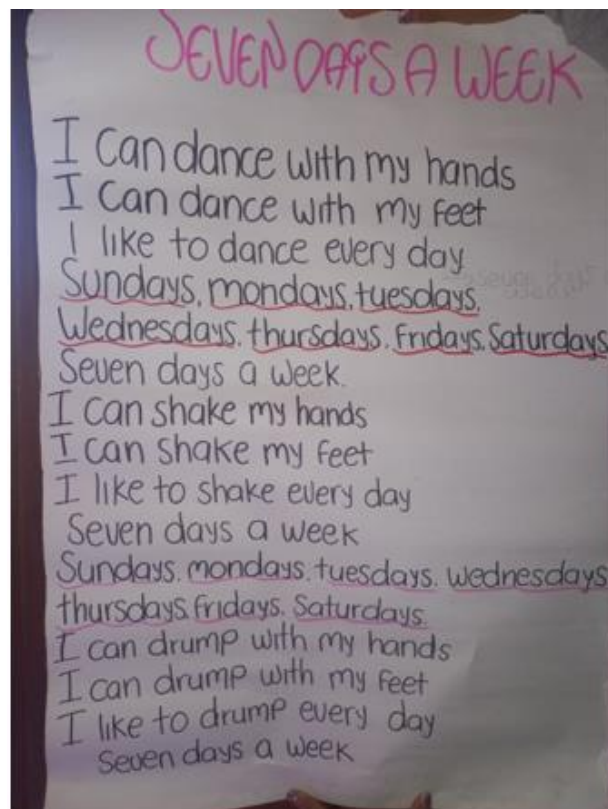 SEVEN DAYS A WEEK
I can dance with my hands
I can dance with my feet
I like to dance every day
Sundays, mondays, tuesdays,
Wednesdays, thursdays, Fridays, Saturdays
Seven days a week.
I can shake my hands
I can shake my feet
I like to shake every day
Seven days a week
Sundays, mondays, tuesdays, wednesdays
thursdays, fridays, Saturdays.
I can drump with my hands
I can drump with my feet
I like to drump every day
Seven days a week